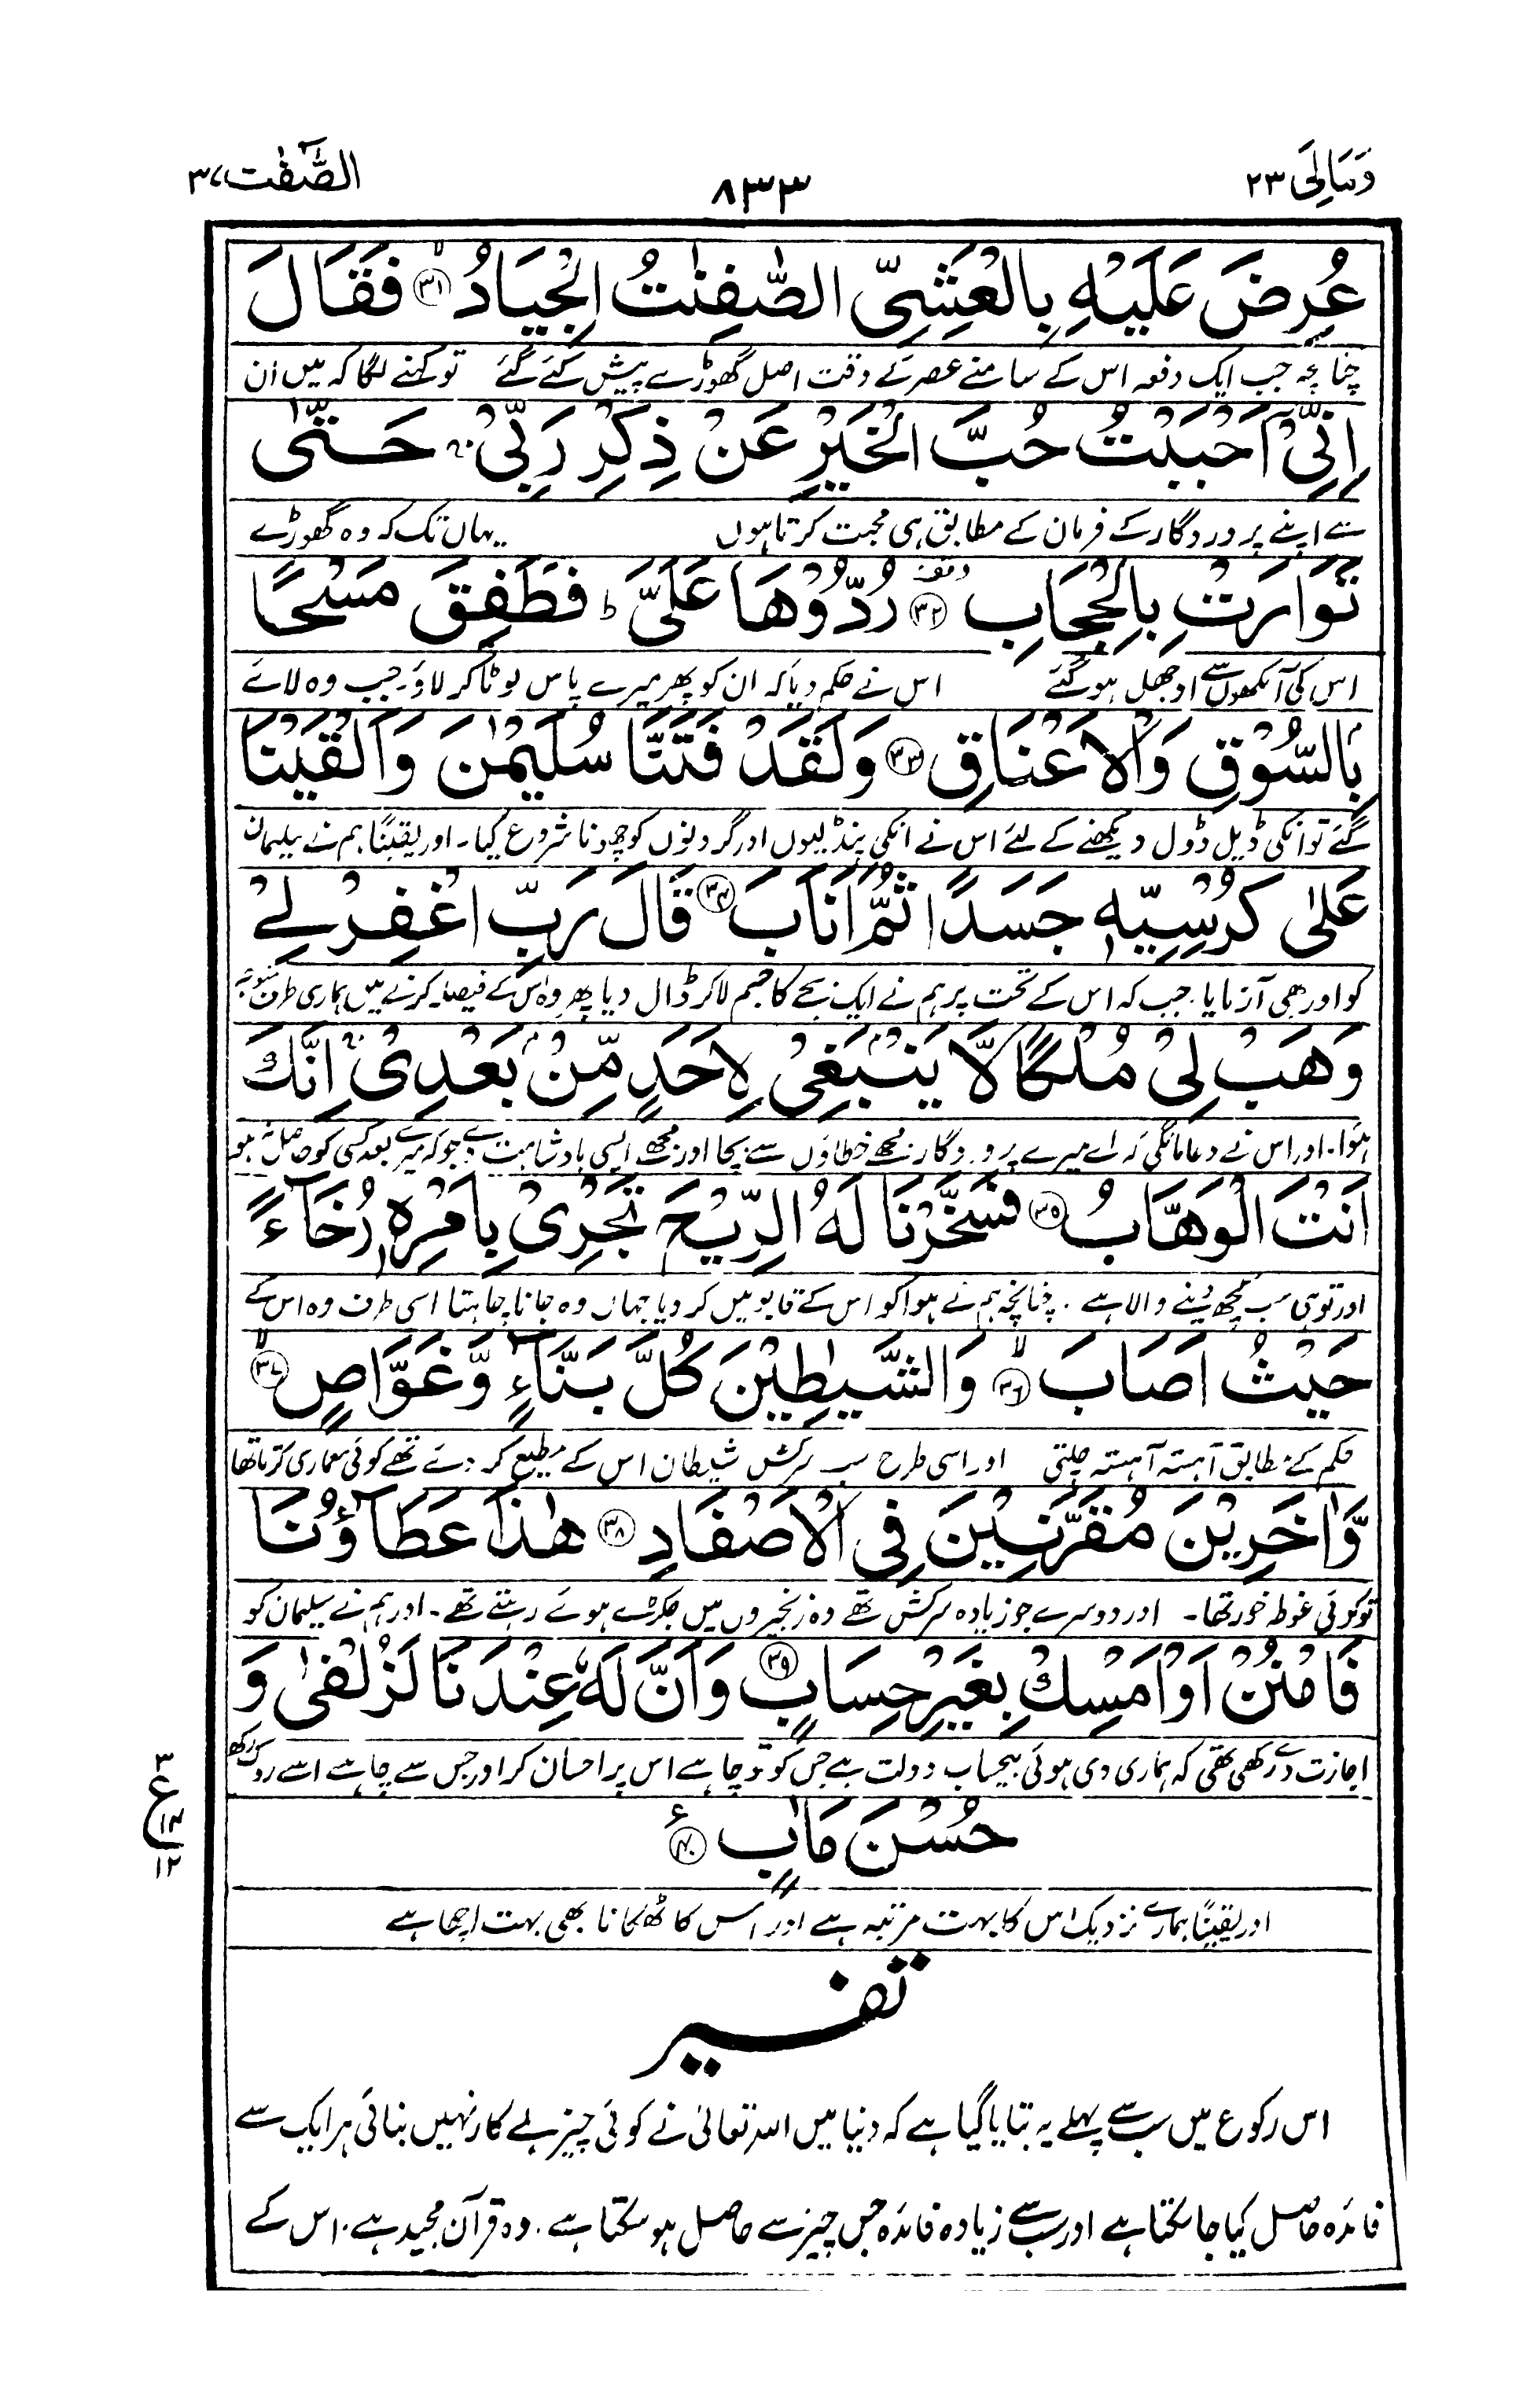 وَمَالِیَ ۲۳
۸۳۳
الصّٰٓفّٰت ۳۷
عُرِضَ عَلَيْهِ بِالْعَشِيِّ الصّٰفِنٰتُ الْجِيَادُ ﴿۳۱﴾ فَقَالَ
چنانچہ جب ایک دفعہ اس کے سامنے عصر کے وقت اصل گھوڑے پیش کئے گئے تو کہنے لگا کہ میں ان
اِنِّیْٓ اَحْبَبْتُ حُبَّ الْخَيْرِ عَنْ ذِكْرِ رَبِّیْ ۚ حَتّٰی
سے اپنے پروردگار کے فرمان کے مطابق ہی محبت کرتا ہوں یہاں تک کہ وہ گھوڑے
تَوَارَتْ بِالْحِجَابِ ﴿۳۲﴾ رُدُّوْهَا عَلَیَّ ؕ فَطَفِقَ مَسْحًا
اس کی آنکھوں سے اوجھل ہو گئے اس نے حکم دیا کہ ان کو پھر میرے پاس لوٹا کر لاؤ۔ جب وہ لائے
بِالسُّوْقِ وَالْاَعْنَاقِ ﴿۳۳﴾ وَلَقَدْ فَتَنَّا سُلَيْمٰنَ وَاَلْقَيْنَا
گئے تو انکی ڈیل ڈول دیکھنے کے لئے اس نے انکی پنڈلیوں اور گردنوں کو چھونا شروع کیا۔ اور یقیناً ہم نے سلیمان
عَلٰی كُرْسِيِّهٖ جَسَدًا ثُمَّ اَنَابَ ﴿۳۴﴾ قَالَ رَبِّ اغْفِرْ لِیْ
کو اور بھی آزمایا۔ جب کہ اس کے تخت پر ہم نے ایک بچے کا جسم لا کر ڈال دیا پھر وہ اس کے فیصلہ کرنے میں ہماری طرف متوجہ
وَهَبْ لِیْ مُلْكًا لَّا يَنْۢبَغِیْ لِاَحَدٍ مِّنْۢ بَعْدِیْ ۚ اِنَّكَ
ہوا۔ اور اس نے دعا مانگی کہ اے میرے پروردگار مجھے خطاؤں سے بچا اور مجھے ایسی بادشاہت دے جو کہ میرے بعد کسی کو حاصل نہ ہو
اَنْتَ الْوَهَّابُ ﴿۳۵﴾ فَسَخَّرْنَا لَهُ الرِّيْحَ تَجْرِیْ بِاَمْرِهٖ رُخَآءً
اور تو ہی سب کچھ دینے والا ہے۔ چنانچہ ہم نے ہوا کو اس کے قابو میں کر دیا جہاں وہ جانا چاہتا اسی طرف وہ اس کے
حَيْثُ اَصَابَ ﴿۳۶﴾ وَالشَّيٰطِيْنَ كُلَّ بَنَّآءٍ وَّغَوَّاصٍ ﴿۳۷﴾
حکم کے مطابق آہستہ آہستہ چلتی اور اسی طرح سب سرکش شیطان اس کے مطیع کر دئے تھے کوئی معماری کرتا تھا
وَّاٰخَرِيْنَ مُقَرَّنِيْنَ فِی الْاَصْفَادِ ﴿۳۸﴾ هٰذَا عَطَآؤُنَا
تو کوئی غوطہ خور تھا۔ اور دوسرے جو زیادہ سرکش تھے وہ زنجیروں میں جکڑے ہوئے رہتے تھے۔ اور ہم نے سلیمان کو
فَامْنُنْ اَوْ اَمْسِكْ بِغَيْرِ حِسَابٍ ﴿۳۹﴾ وَاِنَّ لَهٗ عِنْدَنَا لَزُلْفٰی وَ
اجازت دے رکھی تھی کہ ہماری دی ہوئی بیحساب دولت ہے جس کو تو چاہے اس پر احسان کر اور جس سے چاہے اسے روک رکھ
حُسْنَ مَاٰبٍ ﴿۴۰﴾ ع
۳
ع
۱۴
۱۲
اور یقیناً ہمارے نزدیک اس کا بہت مرتبہ ہے اور اس کا ٹھکانا بھی بہت اچھا ہے
تفسیر
اس رکوع میں سب سے پہلے یہ بتایا گیا ہے کہ دنیا میں اللہ تعالیٰ نے کوئی چیز بے کار نہیں بنائی ہر ایک سے
فائدہ حاصل کیا جا سکتا ہے اور سب سے زیادہ فائدہ جس چیز سے حاصل ہو سکتا ہے۔ وہ قرآن مجید ہے۔ اس کے